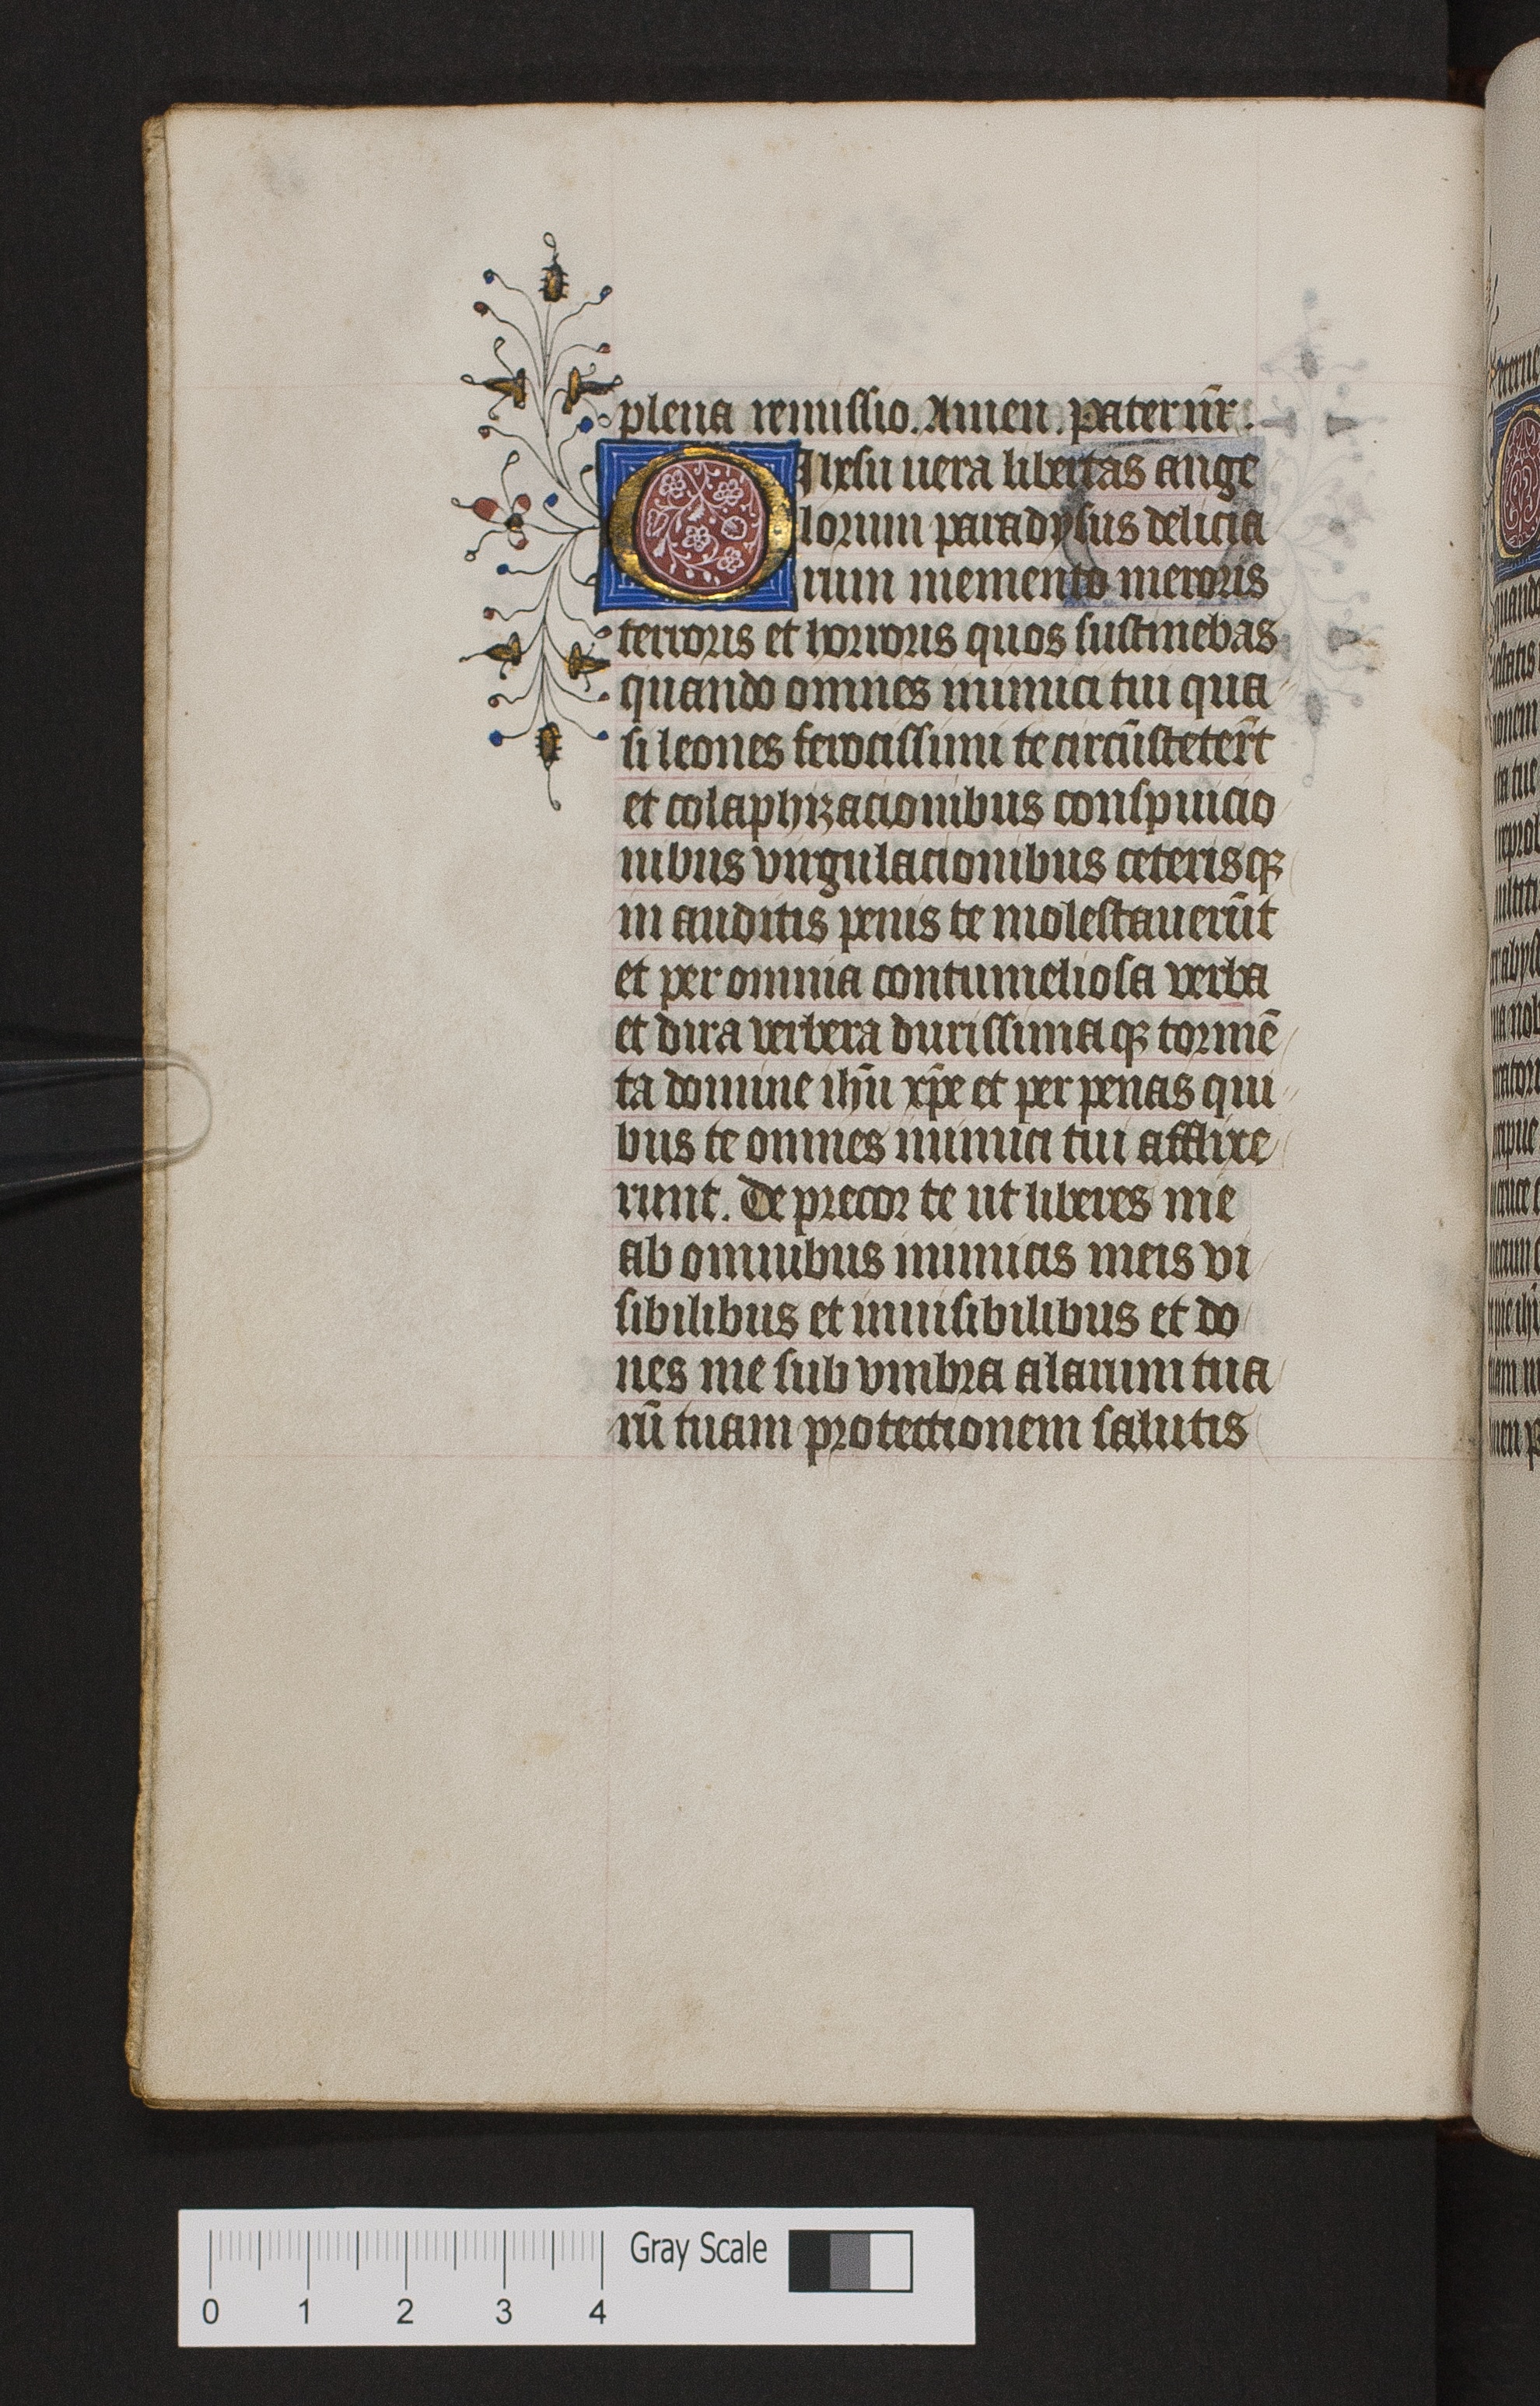 plena remissio. Amen. pater nr̄.
O Ihesu uera libertas ange
lorum paradysus delicia
rum memento meroris
terroris et horroris quos sustinebas
quando omnes inimici tui qua
si leones ferocissimi te circūstetert̄
et colaphizacionibus conspuicio
nibus vngulacionibus ceterisqꝫ
in auditis penis te molestauerūt
et per omnia contumeliosa verba
et dira verbera durissimaqꝫ tormē
ta domine ihū xp̄e et per penas qui
bus te omnes inimici tui afflixe
runt. De precor te ut liberes me
ab omnibus inimicis meis vi
sibilibus et inuisibilibus et do
nes me sub vmbra alarum tua
rū tuam protectionem salutis
Gray Scale
0 1 2 3 4